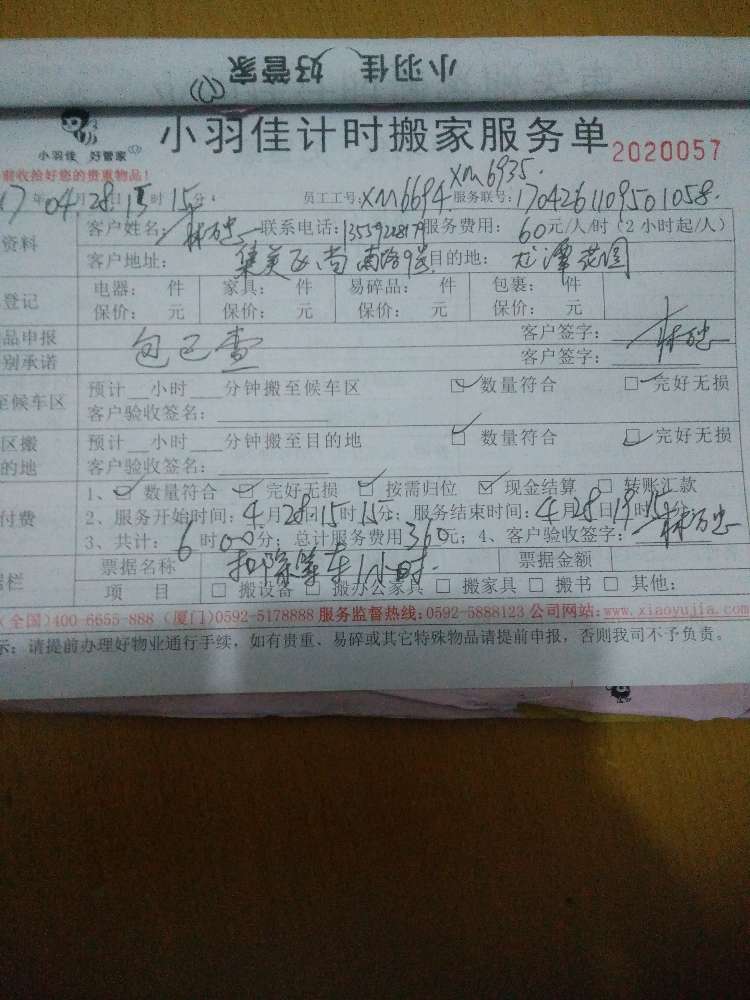 小羽佳 好管家
小羽佳计时搬家服务单 2020057
小羽佳 好管家
前收拾好您的贵重物品！
XM6935
17年04月28日15时15分 员工工号：XM6694 服务联号：1704261109501058
资料 客户姓名： 联系电话： 服务费用：60元/人/时（2小时起/人）
客户地址：集美区尚南路 目的地：龙潭花园
登记 电器： 件 家具： 件 易碎品： 件 包裹： 件
保价： 元 保价： 元 保价： 元 保价： 元
品申报 包已查 客户签字：
别承诺 客户签字：
至候车区 预计__小时___分钟搬至候车区 ☑数量符合 □完好无损
客户验收签名：
区搬 预计__小时___分钟搬至目的地 ☑数量符合 ☑完好无损
的地 客户验收签名：
1、☑数量符合 ☑完好无损 ☑按需归位 ☑现金结算 □转账汇款
付费 2、服务开始时间：4月28日15时15分；服务结束时间：4月28日19时15
3、共计：6时00分；总计服务费用360元；4、客户验收签字：
票据名称 扣除等车1小时. 票据金额
据栏 项 目 □搬设备 □搬办公家具 □搬家具 □搬书 □其他：
(全国)400-6655-888 (厦门)0592-5178888 服务监督热线：0592-5888123 公司网站：www.xiaoyujia.com
示：请提前办理好物业通行手续，如有贵重、易碎或其它特殊物品请提前申报，否则我司不予负责。